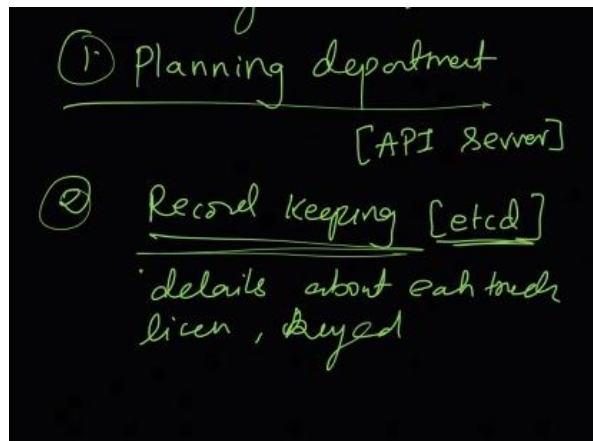 ① Planning department
[API Server]
② Record Keeping [etcd]
details about eah truck
licen,